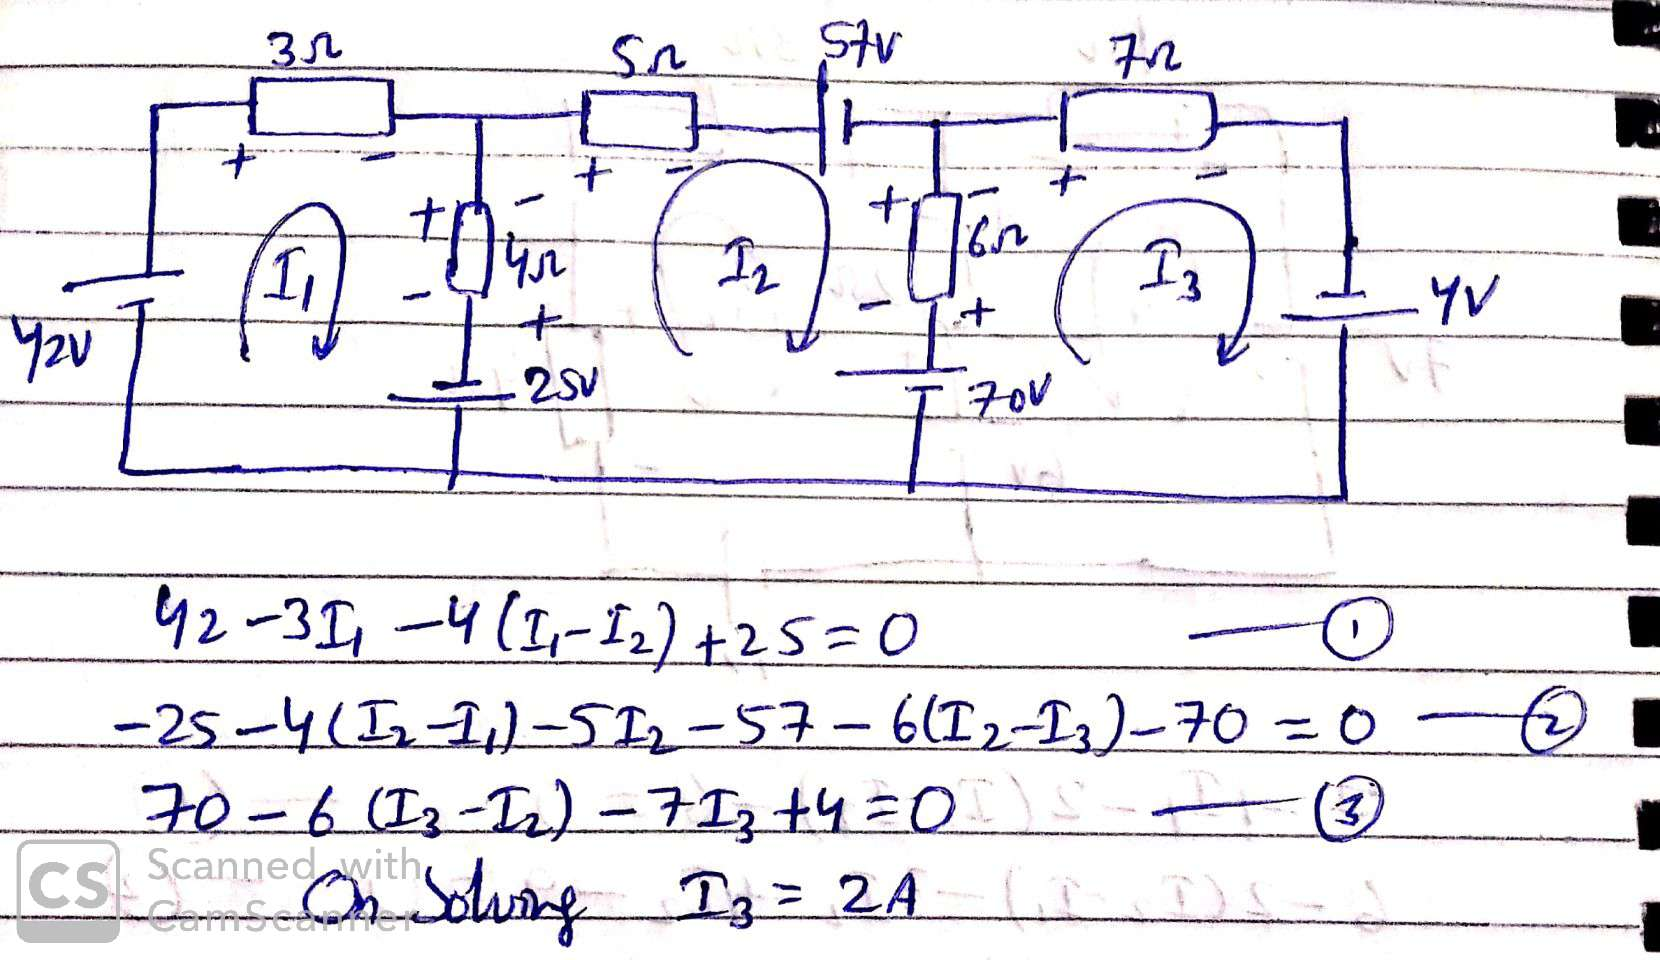 3Ω 5Ω 57V 7Ω
+ - + - + -
+ - 4Ω + - 6Ω
I₁ I₂ I₃
42V - + - + 4V
25V 70V
42 - 3I₁ - 4(I₁-I₂) + 25 = 0 — ①
-25 - 4(I₂-I₁) - 5I₂ - 57 - 6(I₂-I₃) - 70 = 0 — ②
70 - 6(I₃-I₂) - 7I₃ + 4 = 0 — ③
On Solving I₃ = 2A
CS Scanned with
CamScanner